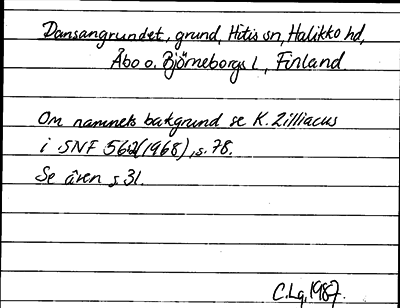 Dansangrundet, grund, Hitis sn, Halikko hd,
Åbo o. Björneborgs l, Finland
Om namnets bakgrund se K. Zilliacus
i SNF 56:2 (1968), s. 78.
Se även s 31.
C.Lg. 1987.